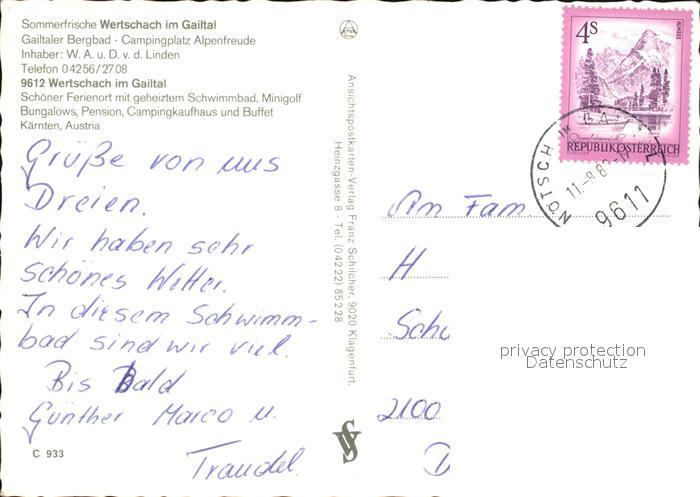 Sommerfrische Wertschach im Gailtal
Gailtaler Bergbad - Campingplatz Alpenfreude
Inhaber: W. A. u. D. v. d. Linden
Telefon 04256/2708
9612 Wertschach im Gailtal
Schöner Ferienort mit geheiztem Schwimmbad, Minigolf
Bungalows, Pension, Campingkaufhaus und Buffet
Kärnten, Austria
Grüße von uns
Dreien.
Wir haben sehr
schönes Wetter.
In diesem Schwimm-
bad sind wir viel.
Bis Bald
Günther Marco u.
Traudel.
C 933
Ansichtspostkarten-Verlag Franz Schilcher, 9020 Klagenfurt,
Heinzgasse 8 - Tel. (04222) 85228
4S
ALMSEE
REPUBLIK ÖSTERREICH
NÖTSCH IM
9611
An Fam.
H
Sch
2100
D
privacy protection
Datenschutz